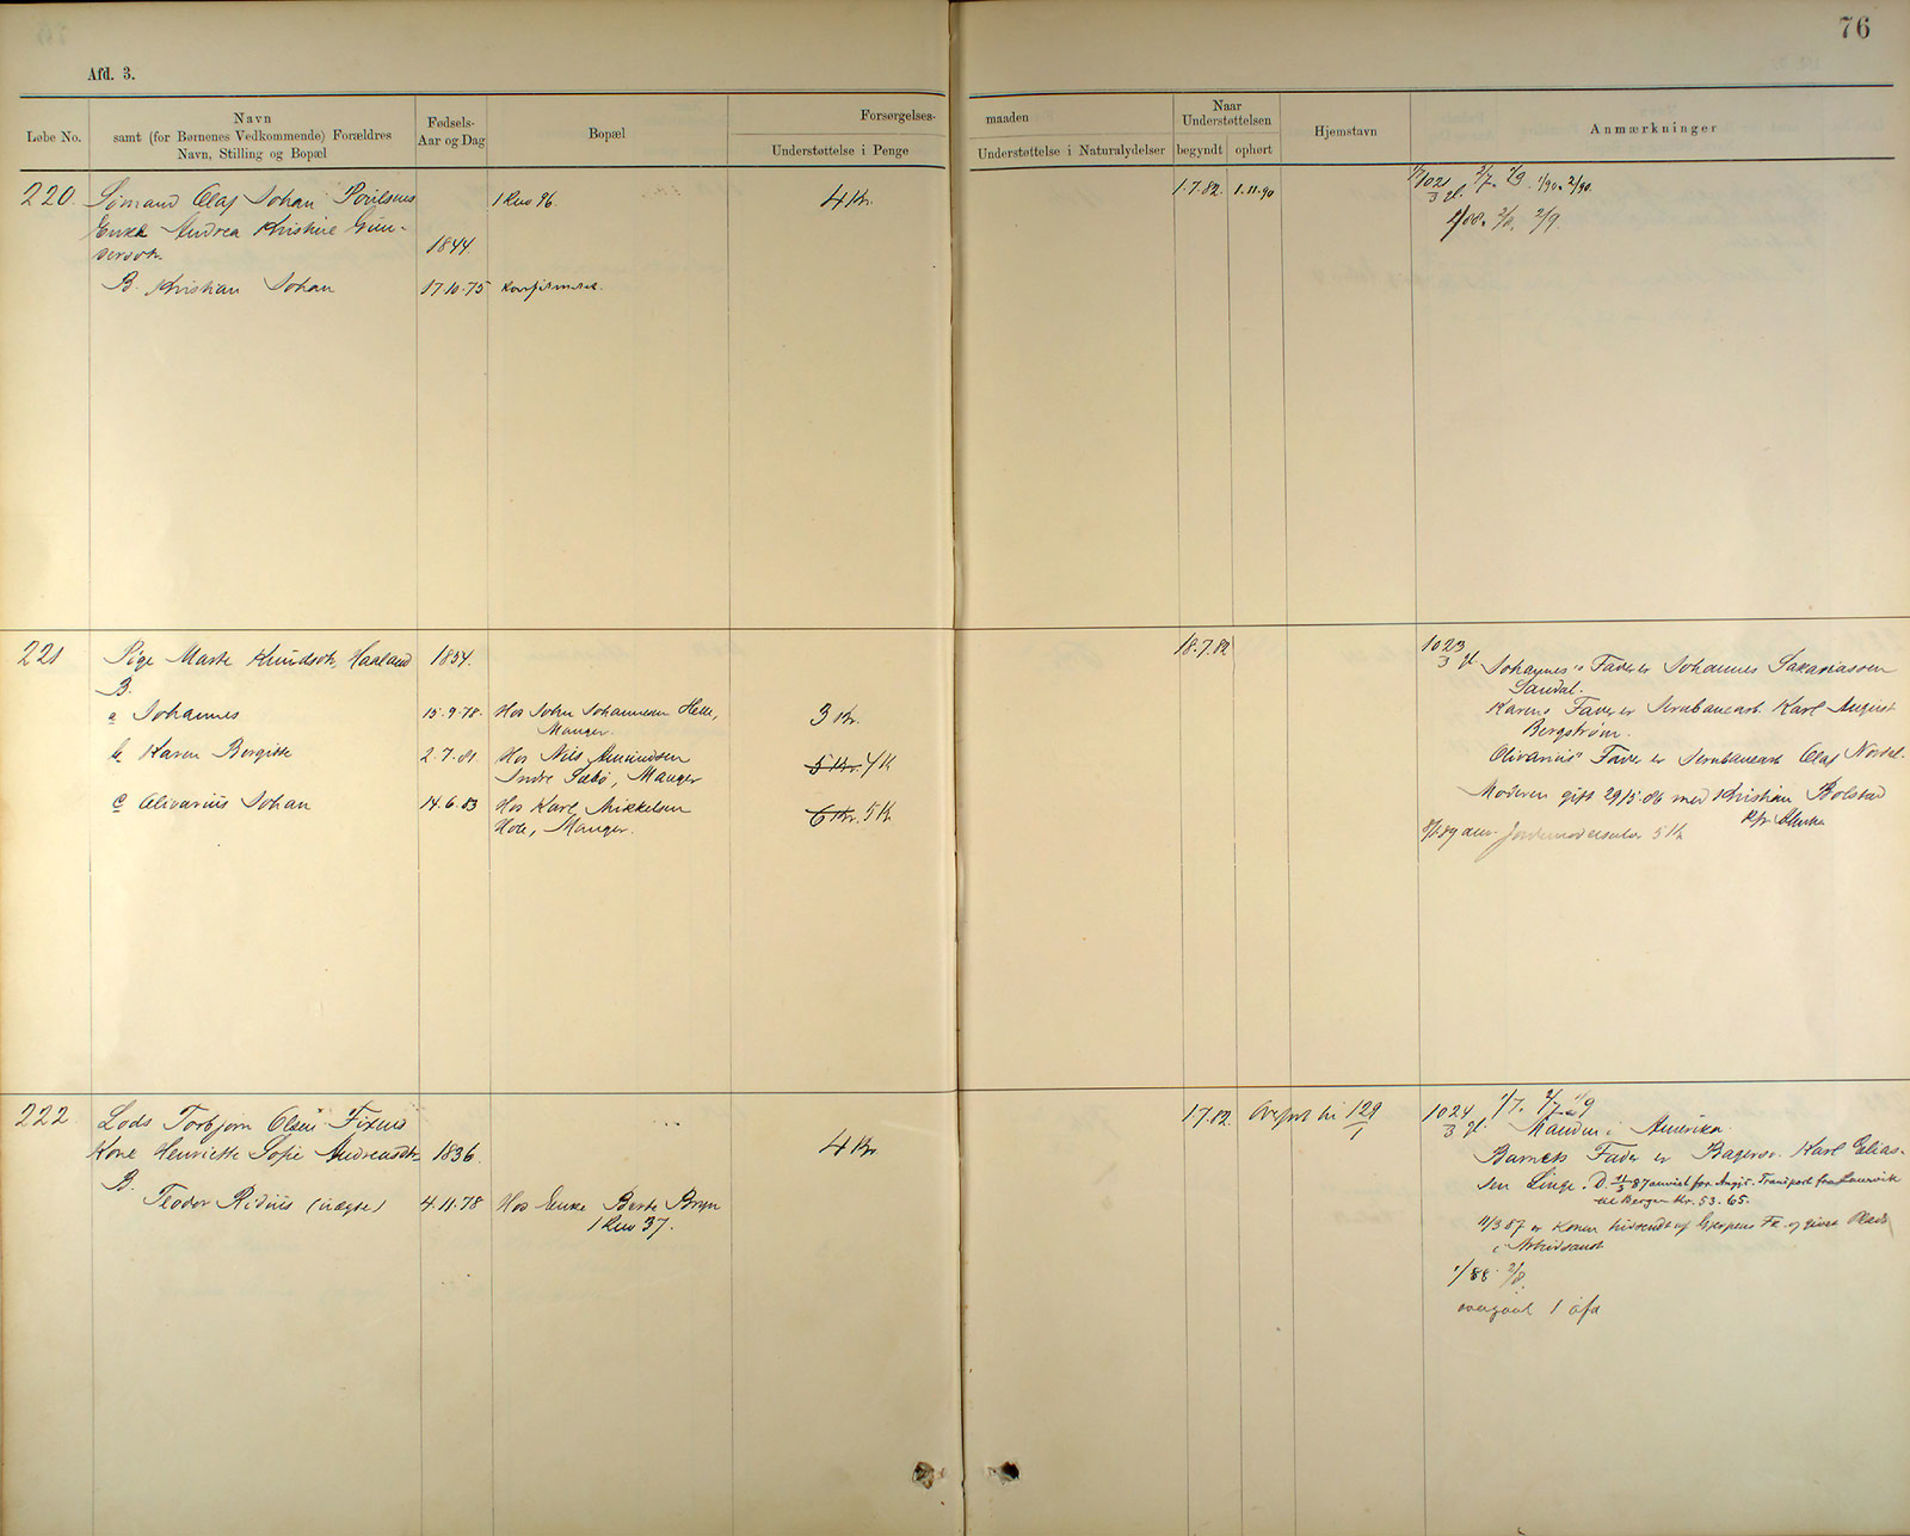 76
Afd. 3.
Løbe No.
Navn
samt (for Børnenes Vedkommende) Forældres
Navn, Stilling og Bopæl
Fødsels-
Aar og Dag
Bopæl
Forsørgelses-
Understøttelse i Penge
maaden
Understøttelse i Naturalydelser
Naar
Understøttelsen
begyndt
ophørt
Hjemstavn
Anmærkninger
220. Sømand Olaf Johan Poulsens
Enke Andrea Kristine Gun-
dersdtr. 1844.
1 Rno 96.
4 Kr.
1.7.82. 1.11.90
1021
3 gl.
2/7. 1/9. 1/90. 2/90.
1/88. 2/8. 2/9.
B. Kristian Johan 17.10.75 Konfirmeret.
221 Pige Marte Knudsdtr. Haaland 1854.
18.7.82
1023
3 gl.
B.
a Johannes 15.9.78. Hos John Johannesen Helle,
Manger.
3 Kr.
b Karen Bergitte 2.7.81. Hos Nils Amundsen
Indre Sæbø, Manger
5 Kr. 4 K
c Olivarius Johan 14.6.83 Hos Karl Mikkelsen
Hole, Manger.
6 Kr. 5 K
Johannes's Fader er Johannes Sakariassen
Sandal.
Karens Fader er Jernbanearb. Karl August
Bergstrøm.
Olivarius' Fader er Jernbanearb Olaf Nordal.
Moderen gift 29/5.86 med Kristian Bolstad
Jordemodersalær 5 K
222 Lods Torbjørn Olsen Fixens
Kone Henriette Sofie Andreasdtr. 1836.
4 Kr.
1.7.82. Overført til 129
1
1024
3 gl.
1/7. 2/7. 1/9
Manden i Amerika.
B.
Teodor Ridius (uægte) 4.11.78 Hos Enke Berte Bryn
1 Rno 37.
Barnets Fader er Bagersv. Karl Elias-
sen Linge. D. 11/3 87 anvist for Angjs. Transport fra Laurvik
til Bergen Kr. 53.65.
11/3 87 er Konen hidsendt af Gjerpens Fk. og givet Plads
i Arbeidsanst
1/88. 2/8.
overgaaet 1 afd